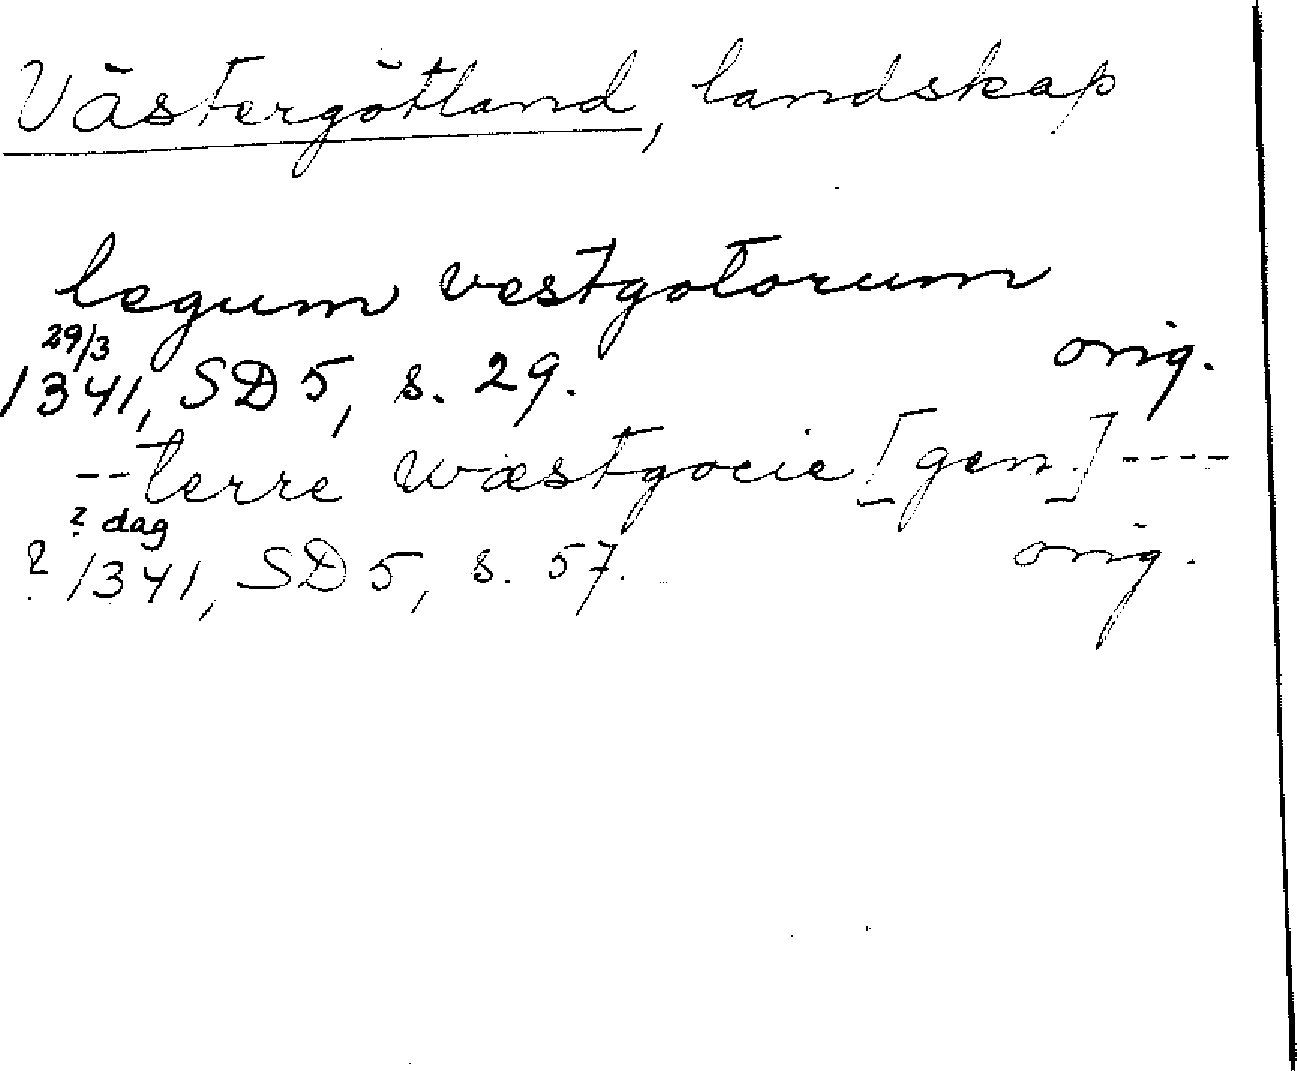 Västergötland, landskap
legum vestgotorum
29/3
1341, SD 5, s. 29. orig.
--terre wæstgocie [gen.] ----
? dag
? 1341, SD 5, s. 57. orig.